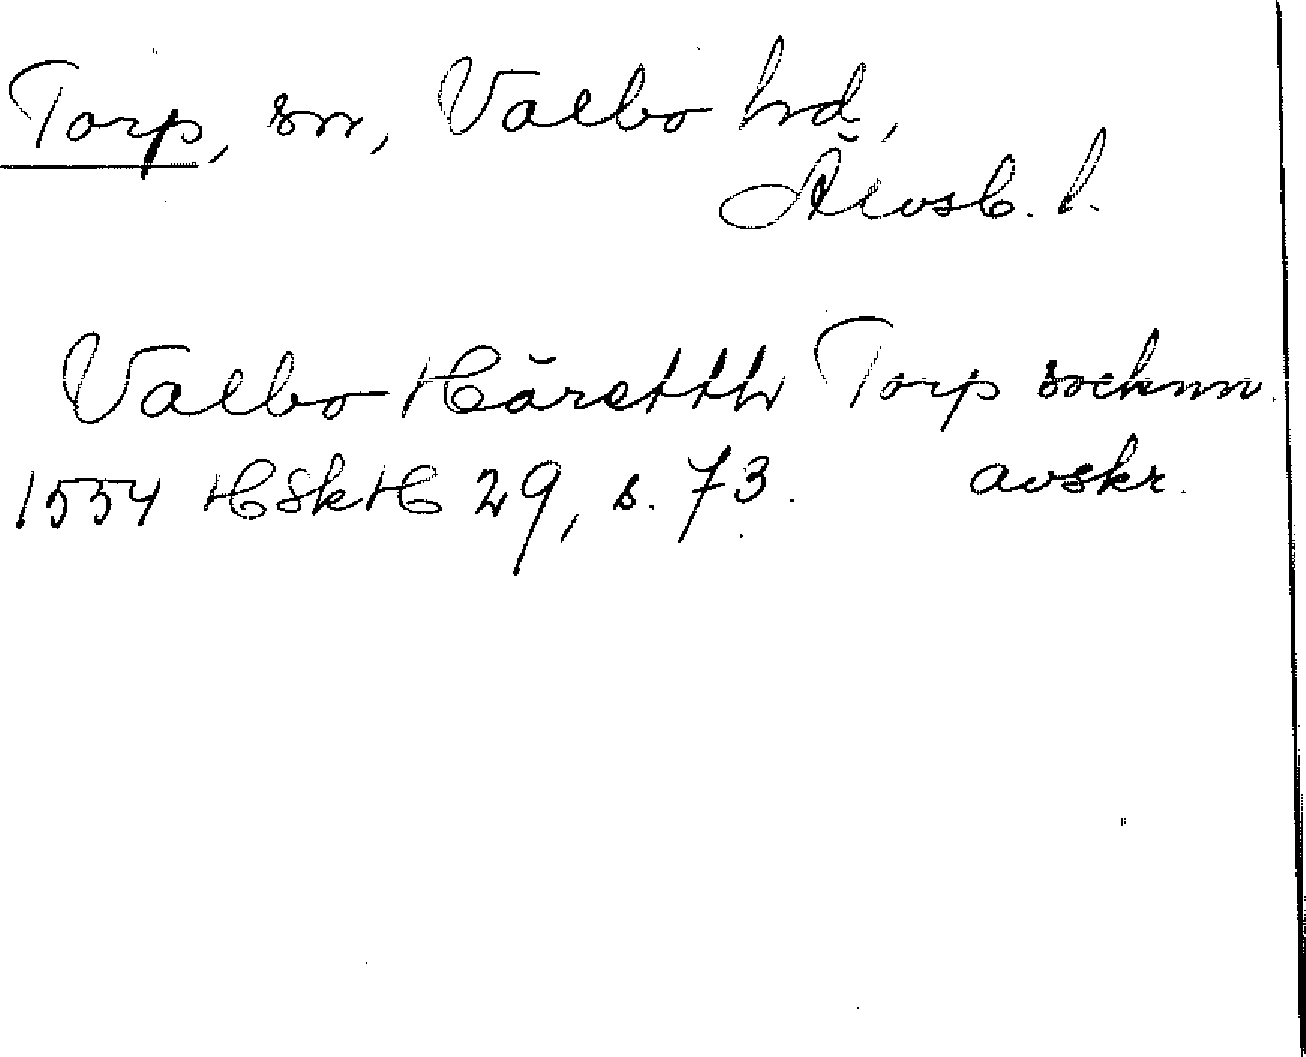 Torp, sn, Valbo hd,
Älvsb. l.
Valbo Häretth Torp sochnn
1554 HSkH 29, s. 73. avskr.